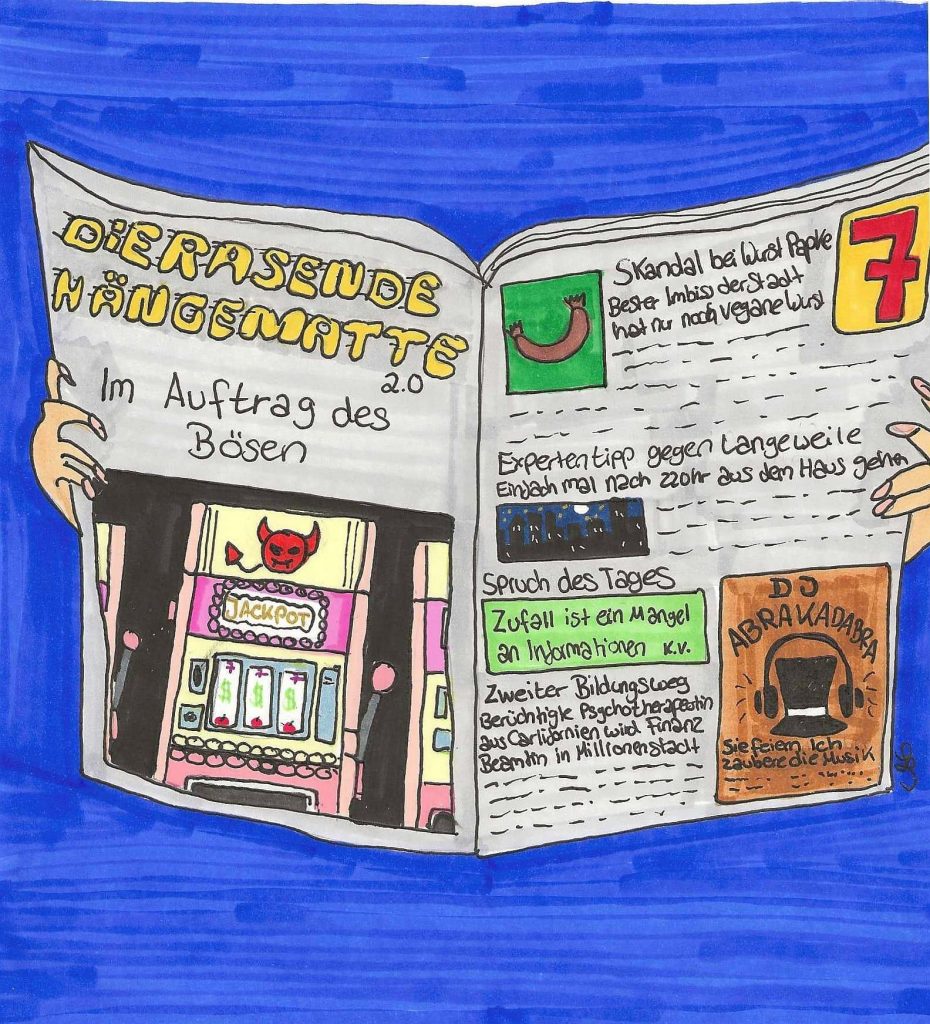 DiE RASENDE
HÄNGEMATTE
2.0
Im Auftrag des
Bösen
JACKPOT
7 7 7
$ $ $
7
Skandal bei Wurst Papke
Bester Imbiss der Stadt
hat nur noch vegane Wurst
Expertentipp gegen Langeweile
Einfach mal nach 22 Uhr aus dem Haus gehen
Spruch des Tages
Zufall ist ein Mangel
an Informationen K.V.
Zweiter Bildungsweg
Berüchtigte Psychotherapeutin
aus Carlifornien wird Finanz
Beamtin in Millionenstadt
DJ
ABRAKADABRA
Sie feiern. Ich
zaubere die Musik